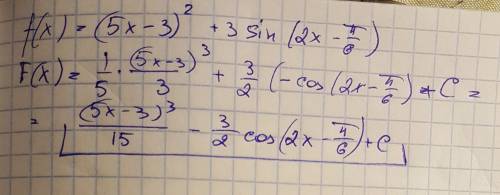 f(x) = (5x-3)² + 3 sin(2x - π/6)
F(x) = 1/5 · (5x-3)³/3 + 3/2 (-cos(2x - π/6) + C =
= (5x-3)³/15 - 3/2 cos(2x - π/6) + C